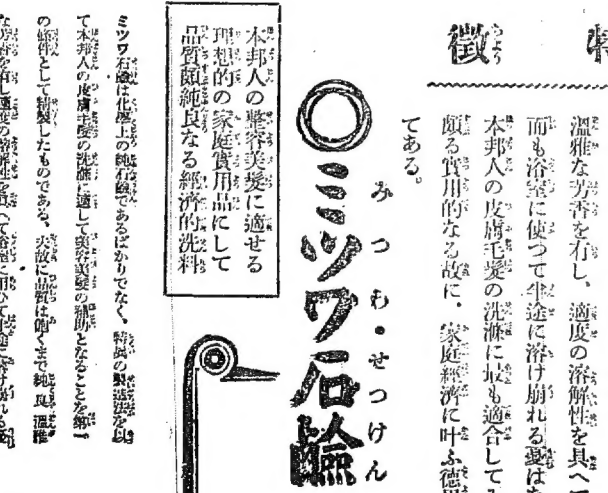 特徴
温雅な芳香を有し、適度の溶解性を具へて
而も浴室に使つて半途に溶け崩れる憂はな
本邦人の皮膚毛髪の洗滌に最も適合して
頗る實用的なる故に、家庭經濟に叶ふ徳用
てある。
みつわ・せつけん
◎ミツワ石鹼
本邦人の整容美髪に適せる
理想的の家庭實用品にして
品質頗純良なる經濟的洗料
ミツワ石鹼は化學上の純石鹼であるばかりでなく、特異の製造法を以
て本邦人の皮膚毛髪の洗滌に適して美容美髪の補助となることを第一
の條件として精製したものである、夫故に品質は飽くまで純良、温雅
な芳香を有し適度の溶解性を具へて浴室に用ひて半途に溶け崩れる憂